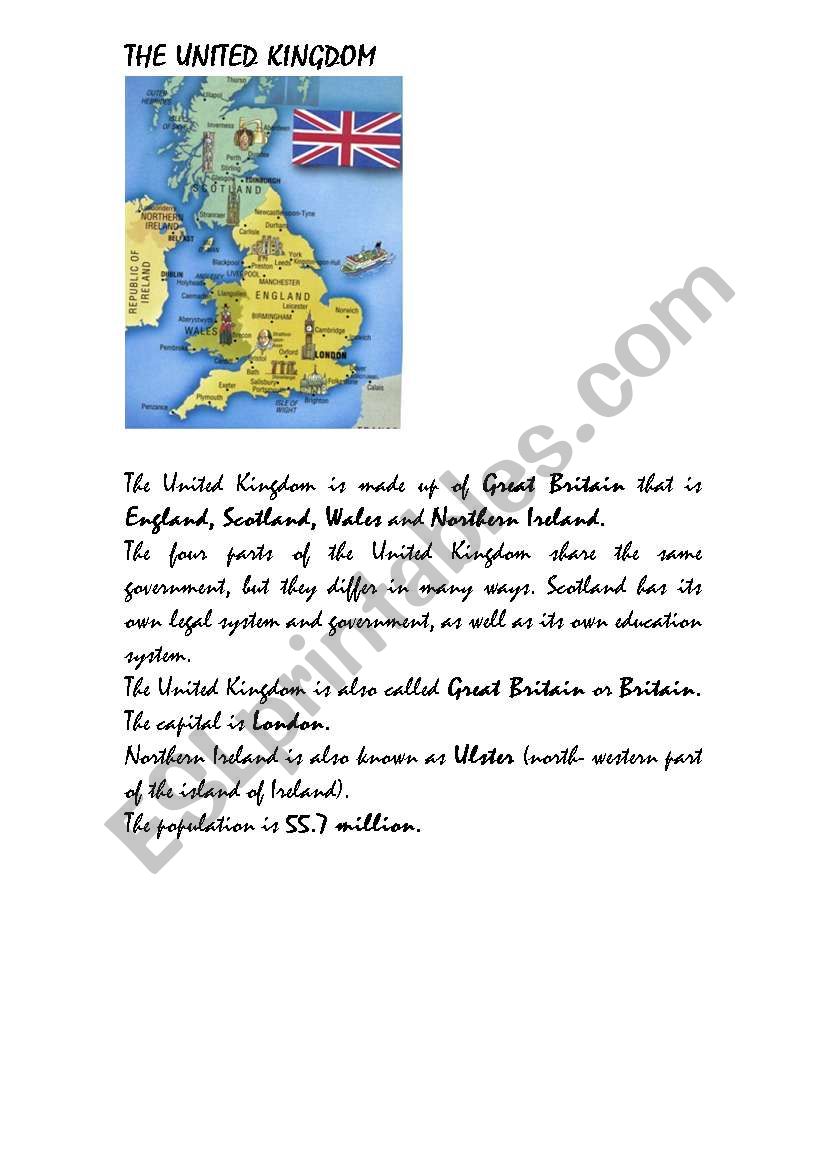 THE UNITED KINGDOM
Thurso
OUTER
HEBRIDES
Ullapol
ISLE
OF SKYE
Inverness
Aberdeen
Perth
Dundee
Stirling
Glasgow
EDINBURGH
SCOTLAND
Stranraer
Newcastle-upon-Tyne
Londonderry
NORTHERN
IRELAND
BELFAST
Durham
Carlisle
ISLE
OF MAN
REPUBLIC OF
IRELAND
DUBLIN
York
Blackpool
Leeds
Kingston-upon-Hull
Preston
ANGLESEY
LIVERPOOL
Holyhead
MANCHESTER
Caernarfon
Llangollen
ENGLAND
Leicester
Norwich
Aberystwyth
BIRMINGHAM
WALES
Cambridge
Brecon
Stratford-
upon-
Avon
Ipswich
Pembroke
Oxford
LONDON
Cardiff
Bristol
Bath
Stonehenge
Dover
Salisbury
Folkestone
Exeter
Portsmouth
Calais
Plymouth
Brighton
ISLE OF
WIGHT
Penzance
FRANCE
The United Kingdom is made up of Great Britain that is
England, Scotland, Wales and Northern Ireland.
The four parts of the United Kingdom share the same
government, but they differ in many ways. Scotland has its
own legal system and government, as well as its own education
system.
The United Kingdom is also called Great Britain or Britain.
The capital is London.
Northern Ireland is also known as Ulster (north- western part
of the island of Ireland).
The population is 55.7 million.
ESLprintables.com